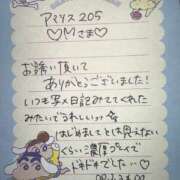 アマソス 205
♡Mさま♡
お誘い頂いて
ありがとうございました!
いつも写メ日記みててくれた
みたいでうれしいッ♪
はじめましてとは思えない
くらい濃厚プレイで
ドキドキでした♡